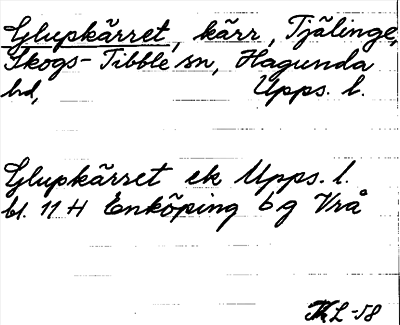 Glupkärret, kärr, Tjälinge,
Skogs-Tibble sn, Hagunda
hd, Upps. l.
Glupkärret ek Upps. l.
bl. 11 H Enköping b g Vrå
KL-58